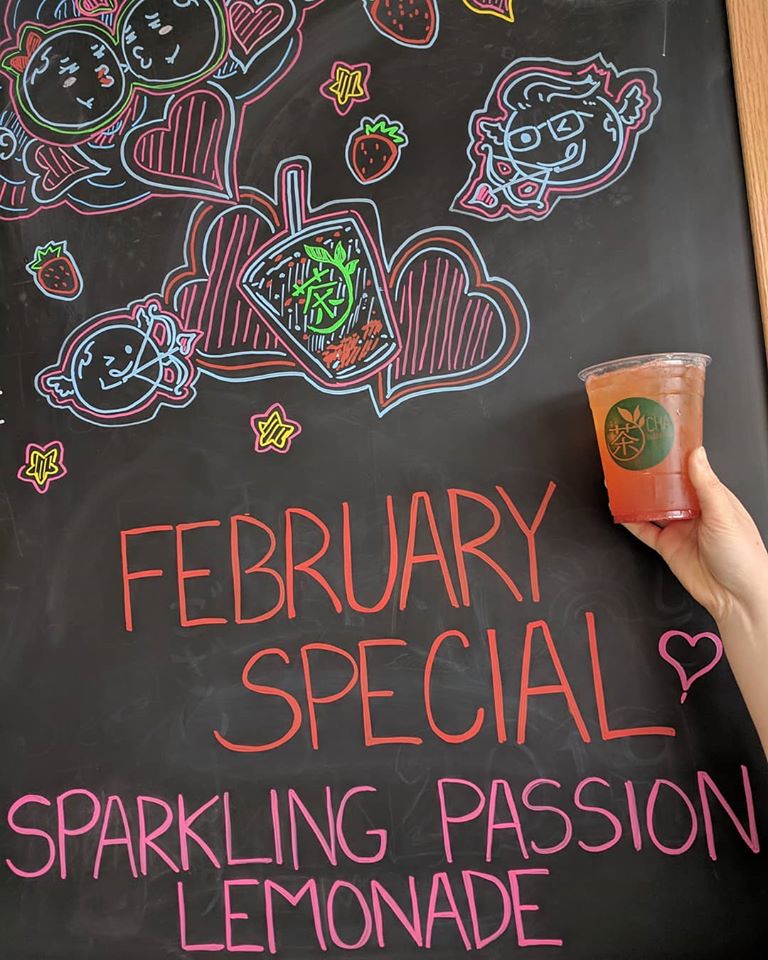 茶
茶
CHA
FEBRUARY
SPECIAL
SPARKLING PASSION
LEMONADE